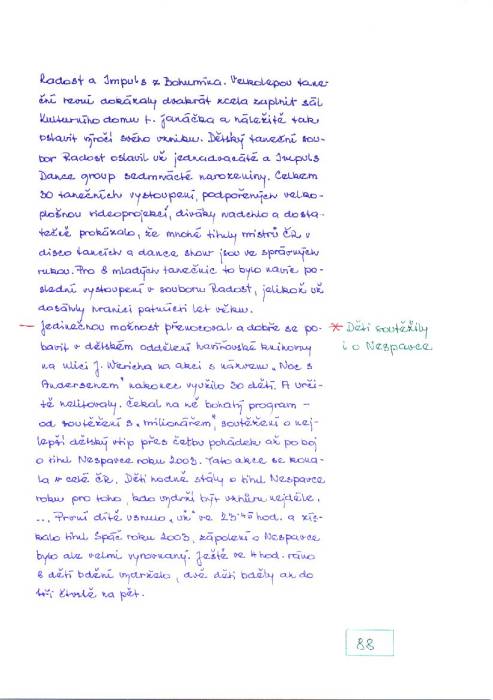 Radost a Impuls z Bohumína. Velkolepou tane-
ční revuí dokázaly dvakrát zcela zaplnit sál
Kulturního domu L. Janáčka a náležitě tak
oslavit výročí svého vzniku. Dětský taneční sou-
bor Radost oslavil už jednadvacáté a Impuls
Dance group sedmnácté narozeniny. Celkem
30 tanečních vystoupení, podpořených velko-
plošnou videoprojekcí, diváky nadchlo a dosta-
tečně prokázalo, že mnohé tituly mistrů ČR v
disco tancích a dance show jsou ve správných
rukou. Pro 8 mladých tanečnic to bylo navíc po-
slední vystoupení v souboru Radost, jelikož už
dosáhly hranici patnácti let věku.
— Jedinečnou možnost přenocovat a dobře se po-
bavit v dětském oddělení havířovské knihovny
na ulici J. Wericha na akci s názvem „Noc s
Andersenem" nakonec využilo 30 dětí. A urči-
tě nelitovaly. Čekal na ně bohatý program –
od soutěžení s „milionářem", soutěžení o nej-
lepší dětský vtip přes četbu pohádek až po boj
o titul Nespavce roku 2003. Tato akce se kona-
la v celé ČR. Děti hodně stály o titul Nespavce
roku pro toho, kdo vydrží být vzhůru nejdéle.
... První dítě usnulo „už" ve 23⁴⁵ hod. a zís-
kalo titul Spáč roku 2003, zápolení o Nespavce
bylo ale velmi vyrovnaný. Ještě ve 4 hod. ráno
8 dětí bdění vydrželo, dvě děti bděly až do
tří čtvrtě na pět.
* Děti soutěžily
i o Nespavce
88